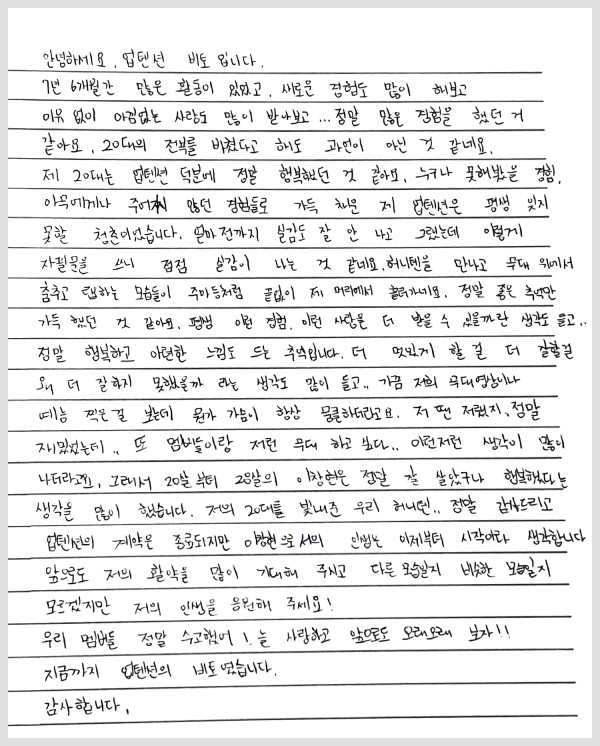 안녕하세요. 업텐션 비토 입니다.
7년 6개월간 많은 활동이 있었고, 새로운 경험도 많이 해보고
이유 없이 아낌없는 사랑도 많이 받아보고... 정말 많은 경험을 했던 거
같아요. 20대의 전부를 바쳤다고 해도 과언이 아닌 것 같네요.
제 20대는 업텐션 덕분에 정말 행복했던 것 같아요. 누구나 못해봤을 경험,
아무에게나 주어지지 않던 경험들로 가득 채운 제 업텐션은 평생 잊지
못할 청춘이었습니다. 얼마전까지 실감도 잘 안 나고 그랬는데 이렇게
자필문을 쓰니 점점 실감이 나는 것 같네요. 허니텐을 만나고 무대 위에서
춤추고 랩하는 모습들이 주마등처럼 끝없이 제 머리에서 흘러가네요. 정말 좋은 추억만
가득 했던 것 같아요. 평생 이런 경험, 이런 사랑을 더 받을 수 있을까란 생각도 들고..
정말 행복하고 아련한 느낌도 드는 추억입니다. 더 멋있게 할 걸 더 잘할걸
왜 더 잘하지 못했을까 라는 생각도 많이 들고.. 가끔 저희 무대영상이나
예능 찍은걸 보는데 뭔가 가슴이 항상 뭉클하더라고요. 저 땐 저랬지, 정말
재밌었는데.. 또 멤버들이랑 저런 무대 하고 싶다.. 이런저런 생각이 많이
나더라고요. 그래서 20살 부터 28살의 이창현은 정말 잘 살았구나 행복했다 는
생각을 많이 했습니다. 저의 20대를 빛내준 우리 허니텐.. 정말 감사드리고
업텐션의 계약은 종료되지만 이창현으로서의 인생은 이제부터 시작이라 생각합니다
앞으로도 저의 활약을 많이 기대해 주시고 다른 모습일지 비슷한 모습일지
모르겠지만 저의 인생을 응원해 주세요!
우리 멤버들 정말 수고했어! 늘 사랑하고 앞으로도 오래오래 보자!!
지금까지 업텐션의 비토였습니다.
감사합니다.